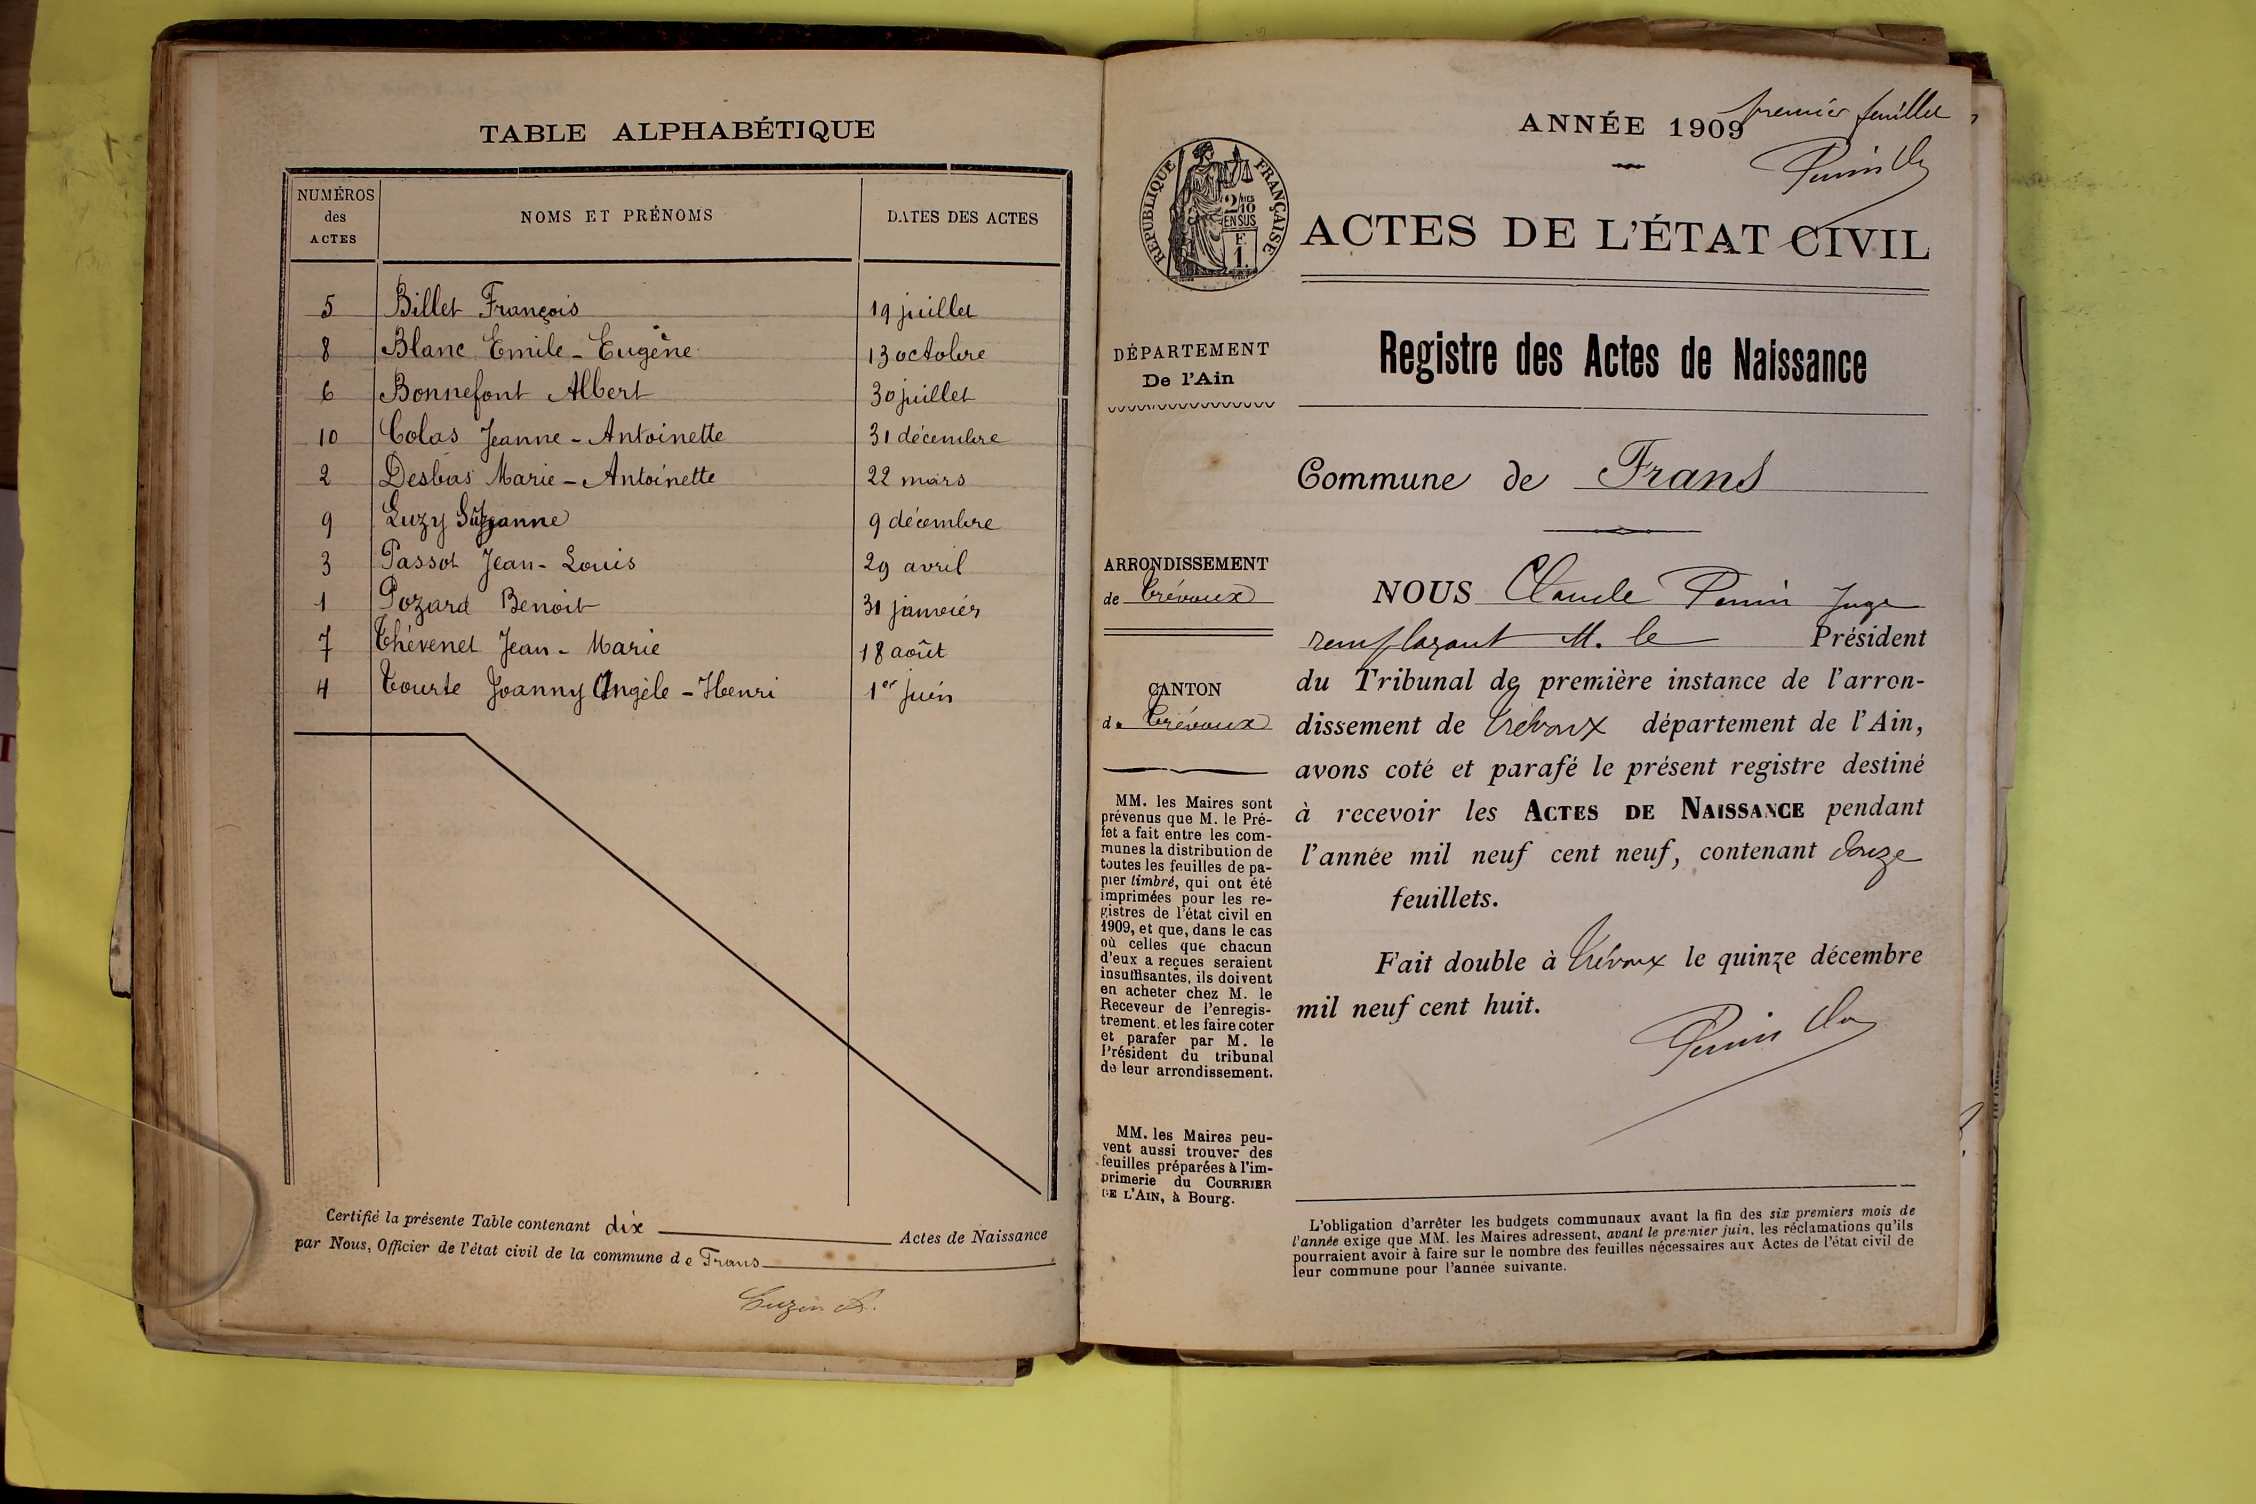 TABLE ALPHABÉTIQUE
NUMÉROS des ACTES NOMS ET PRÉNOMS DATES DES ACTES
5 Billet François 19 juillet
8 Blanc Emile-Eugène 13 octobre
6 Bonnefont Albert 30 juillet
10 Colas Jeanne-Antoinette 31 décembre
2 Desbas Marie-Antoinette 22 mars
9 Luzy Suzanne 9 décembre
3 Passot Jean-Louis 29 avril
1 Pozard Benoit 31 janvier
7 Thévenet Jean-Marie 18 août
4 Tourte Joanny Angèle-Henri 1er juin
Certifié la présente Table contenant dix Actes de Naissance
par Nous, Officier de l'état civil de la commune de Frans
Luzin A.
premier feuillet
ANNÉE 1909
RÉPUBLIQUE FRANÇAISE
2/10 EN SUS
F. 1.
ACTES DE L'ÉTAT CIVIL
Registre des Actes de Naissance
DÉPARTEMENT
De l'Ain
Commune de Frans
ARRONDISSEMENT
de Trévoux
CANTON
de Trévoux
MM. les Maires sont
prévenus que M. le Pré-
fet a fait entre les com-
munes la distribution de
toutes les feuilles de pa-
pier timbré, qui ont été
imprimées pour les re-
gistres de l'état civil en
1909, et que, dans le cas
où celles que chacun
d'eux a reçues seraient
insuffisantes, ils doivent
en acheter chez M. le
Receveur de l'enregis-
trement, et les faire coter
et parafer par M. le
Président du tribunal
de leur arrondissement.
MM. les Maires peu-
vent aussi trouver des
feuilles préparées à l'im-
primerie du COURRIER
DE L'AIN, à Bourg.
NOUS Claude Perrin Juge
remplaçant M. le Président
du Tribunal de première instance de l'arron-
dissement de Trévoux département de l'Ain,
avons coté et parafé le présent registre destiné
à recevoir les ACTES DE NAISSANCE pendant
l'année mil neuf cent neuf, contenant douze
feuillets.
Fait double à Trévoux le quinze décembre
mil neuf cent huit.
L'obligation d'arrêter les budgets communaux avant la fin des six premiers mois de
l'année exige que MM. les Maires adressent, avant le premier juin, les réclamations qu'ils
pourraient avoir à faire sur le nombre des feuilles nécessaires aux Actes de l'état civil de
leur commune pour l'année suivante.